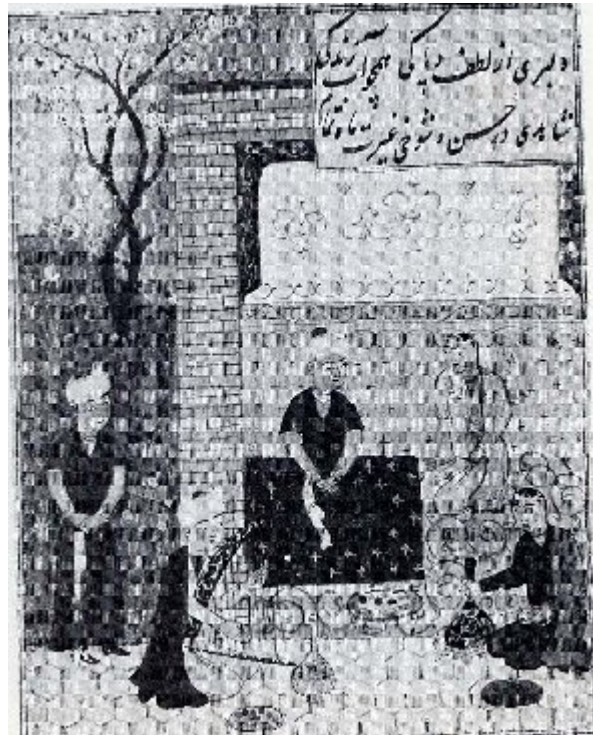 دلبری از لطف و پاکی همچو آب زندگی
شاهدی در حسن و شوخی غیرت ماه تمام